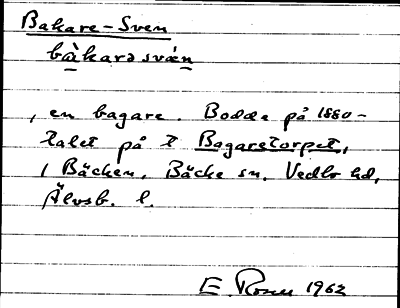 Bakare-Sven
bàkarə svæn
, en bagare. Bodde på 1880-
talet på t Bagaretorpet,
i Bäcken, Bäcke sn, Vedbo hd,
Älvsb. l.
E Rosen 1962